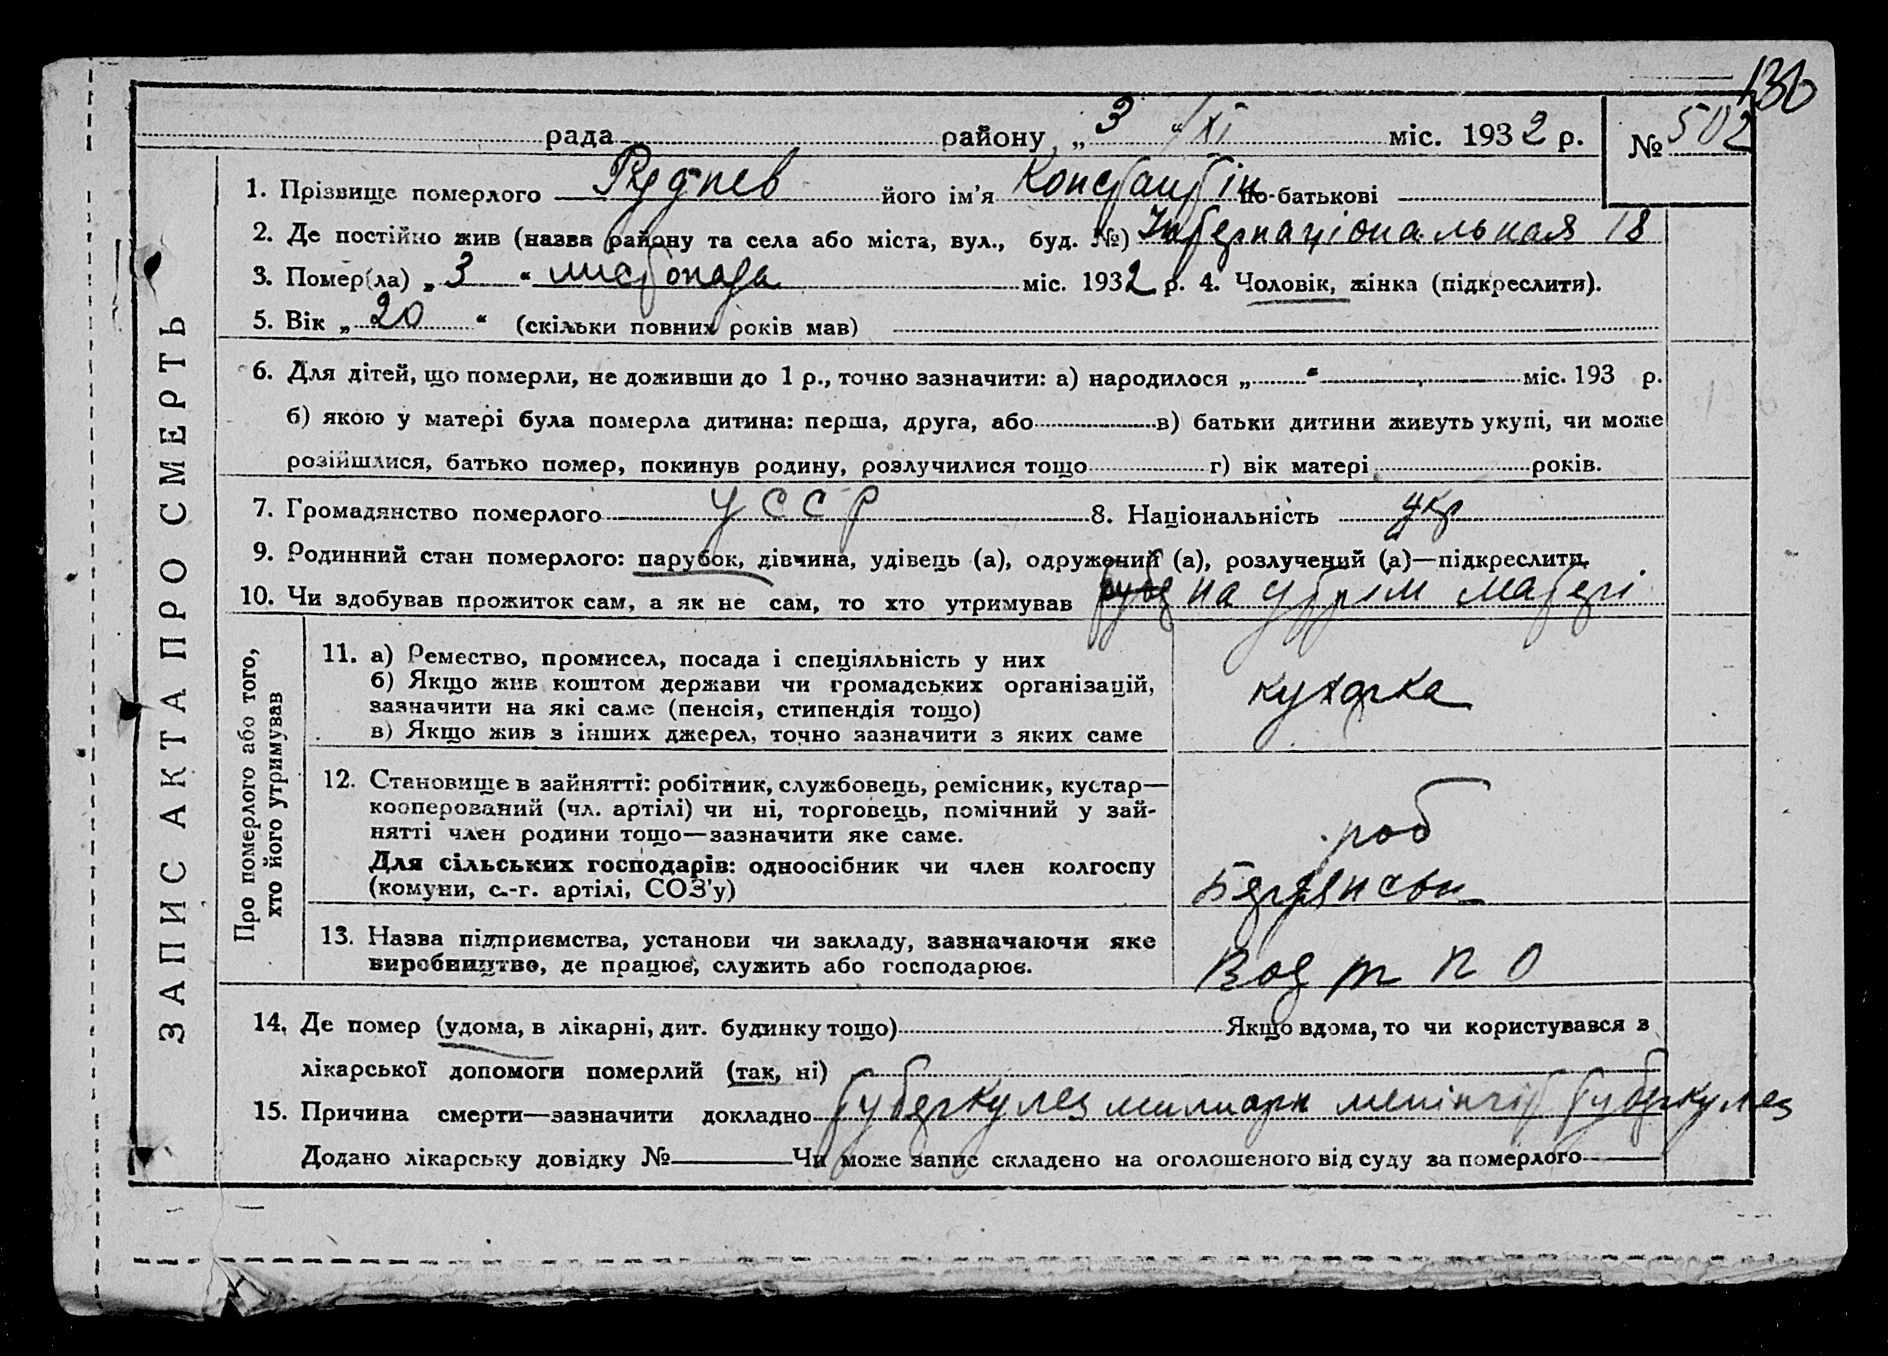 136
рада района „3“ XI міс. 1932 р. № 502
1. Прізвище померлого його ім’я Константін по-батькові
2. Де постійно жив (назва району та села або міста, вул., буд. №) Інтернаціональная 18
3. Помер(ла) „3“ листопада міс. 1932 р. 4. Чоловік, жінка (підкреслити).
5. Вік „20“ (скільки повних років мав)
6. Для дітей, що померли, не доживши до 1 р., точно зазначити: а) народилося „ “ міс. 193 р.
б) якою у матері була померла дитина: перша, друга, або в) батьки дитини живуть укупі, чи може
розійшлися, батько помер, покинув родину, розлучилися тощо г) вік матері років.
7. Громадянство померлого УССР 8. Національність укр
9. Родинний стан померлого: парубок, дівчина, удівець (а), одружений (а), розлучений (а)—підкреслити.
10. Чи здобував прожиток сам, а як не сам, то хто утримував на утрім матері
ЗАПИС АКТА ПРО СМЕРТЬ
Про померлого або того,
хто його утримував
11. а) Ремество, промисел, посада і спеціяльність у них
б) Якщо жив коштом держави чи громадських організацій,
зазначити на які саме (пенсія, стипендія тощо)
в) Якщо жив з інших джерел, точно зазначити з яких саме
кухарка
12. Становище в зайнятті: робітник, службовець, ремісник, кустар—
кооперований (чл. артілі) чи ні, торговець, помічний у зай-
нятті член родини тощо—зазначити яке саме.
Для сільських господарів: одноосібник чи член колгоспу
(комуни, с.-г. артілі, СОЗ’у)
роб
13. Назва підприємства, установи чи закладу, зазначаючи яке
виробництво, де працює, служить або господарює.
14. Де помер (удома, в лікарні, дит. будинку тощо) Якщо вдома, то чи користувався з
лікарської допомоги померлий (так, ні)
15. Причина смерти—зазначити докладно туберкулез милиарн менінгіт туберкулез
Додано лікарську довідку № Чи може запис складено на оголошеного від суду за померлого